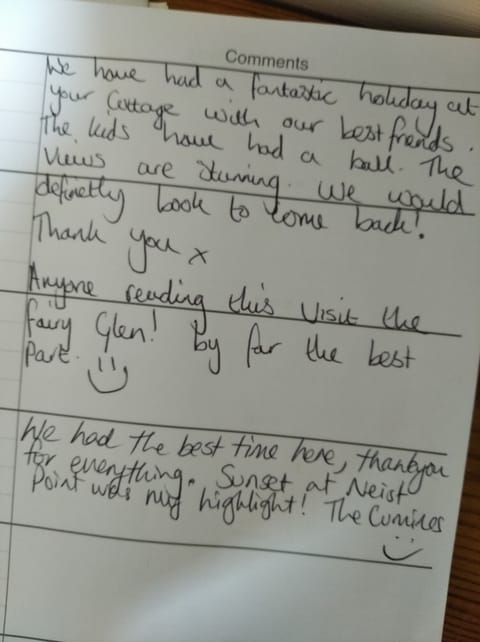 Comments
We have had a fantastic holiday at
your Cottage with our best frends.
The kids have had a ball. The
views are stunning. We would
definetly book to come back!
Thank you x
Anyone reading this visit the
fairy Glen! by far the best
part.
We had the best time here, thankyou
for everything. Sunset at Neist
Point was my highlight! The Cumines